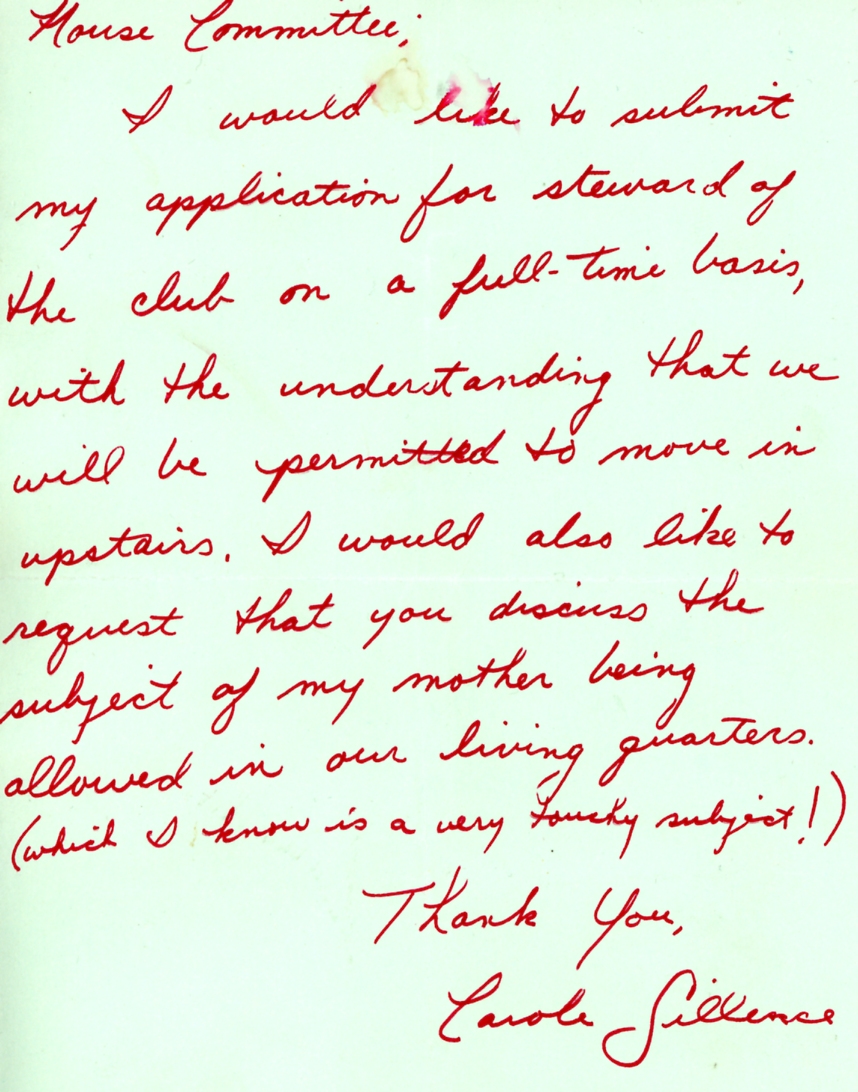 House Committee;
I would like to submit
my application for steward of
the club on a full-time basis,
with the understanding that we
will be permitted to move in
upstairs. I would also like to
request that you discuss the
subject of my mother being
allowed in our living quarters.
(which I know is a very touchy subject!)
Thank You,
Carole Sillence